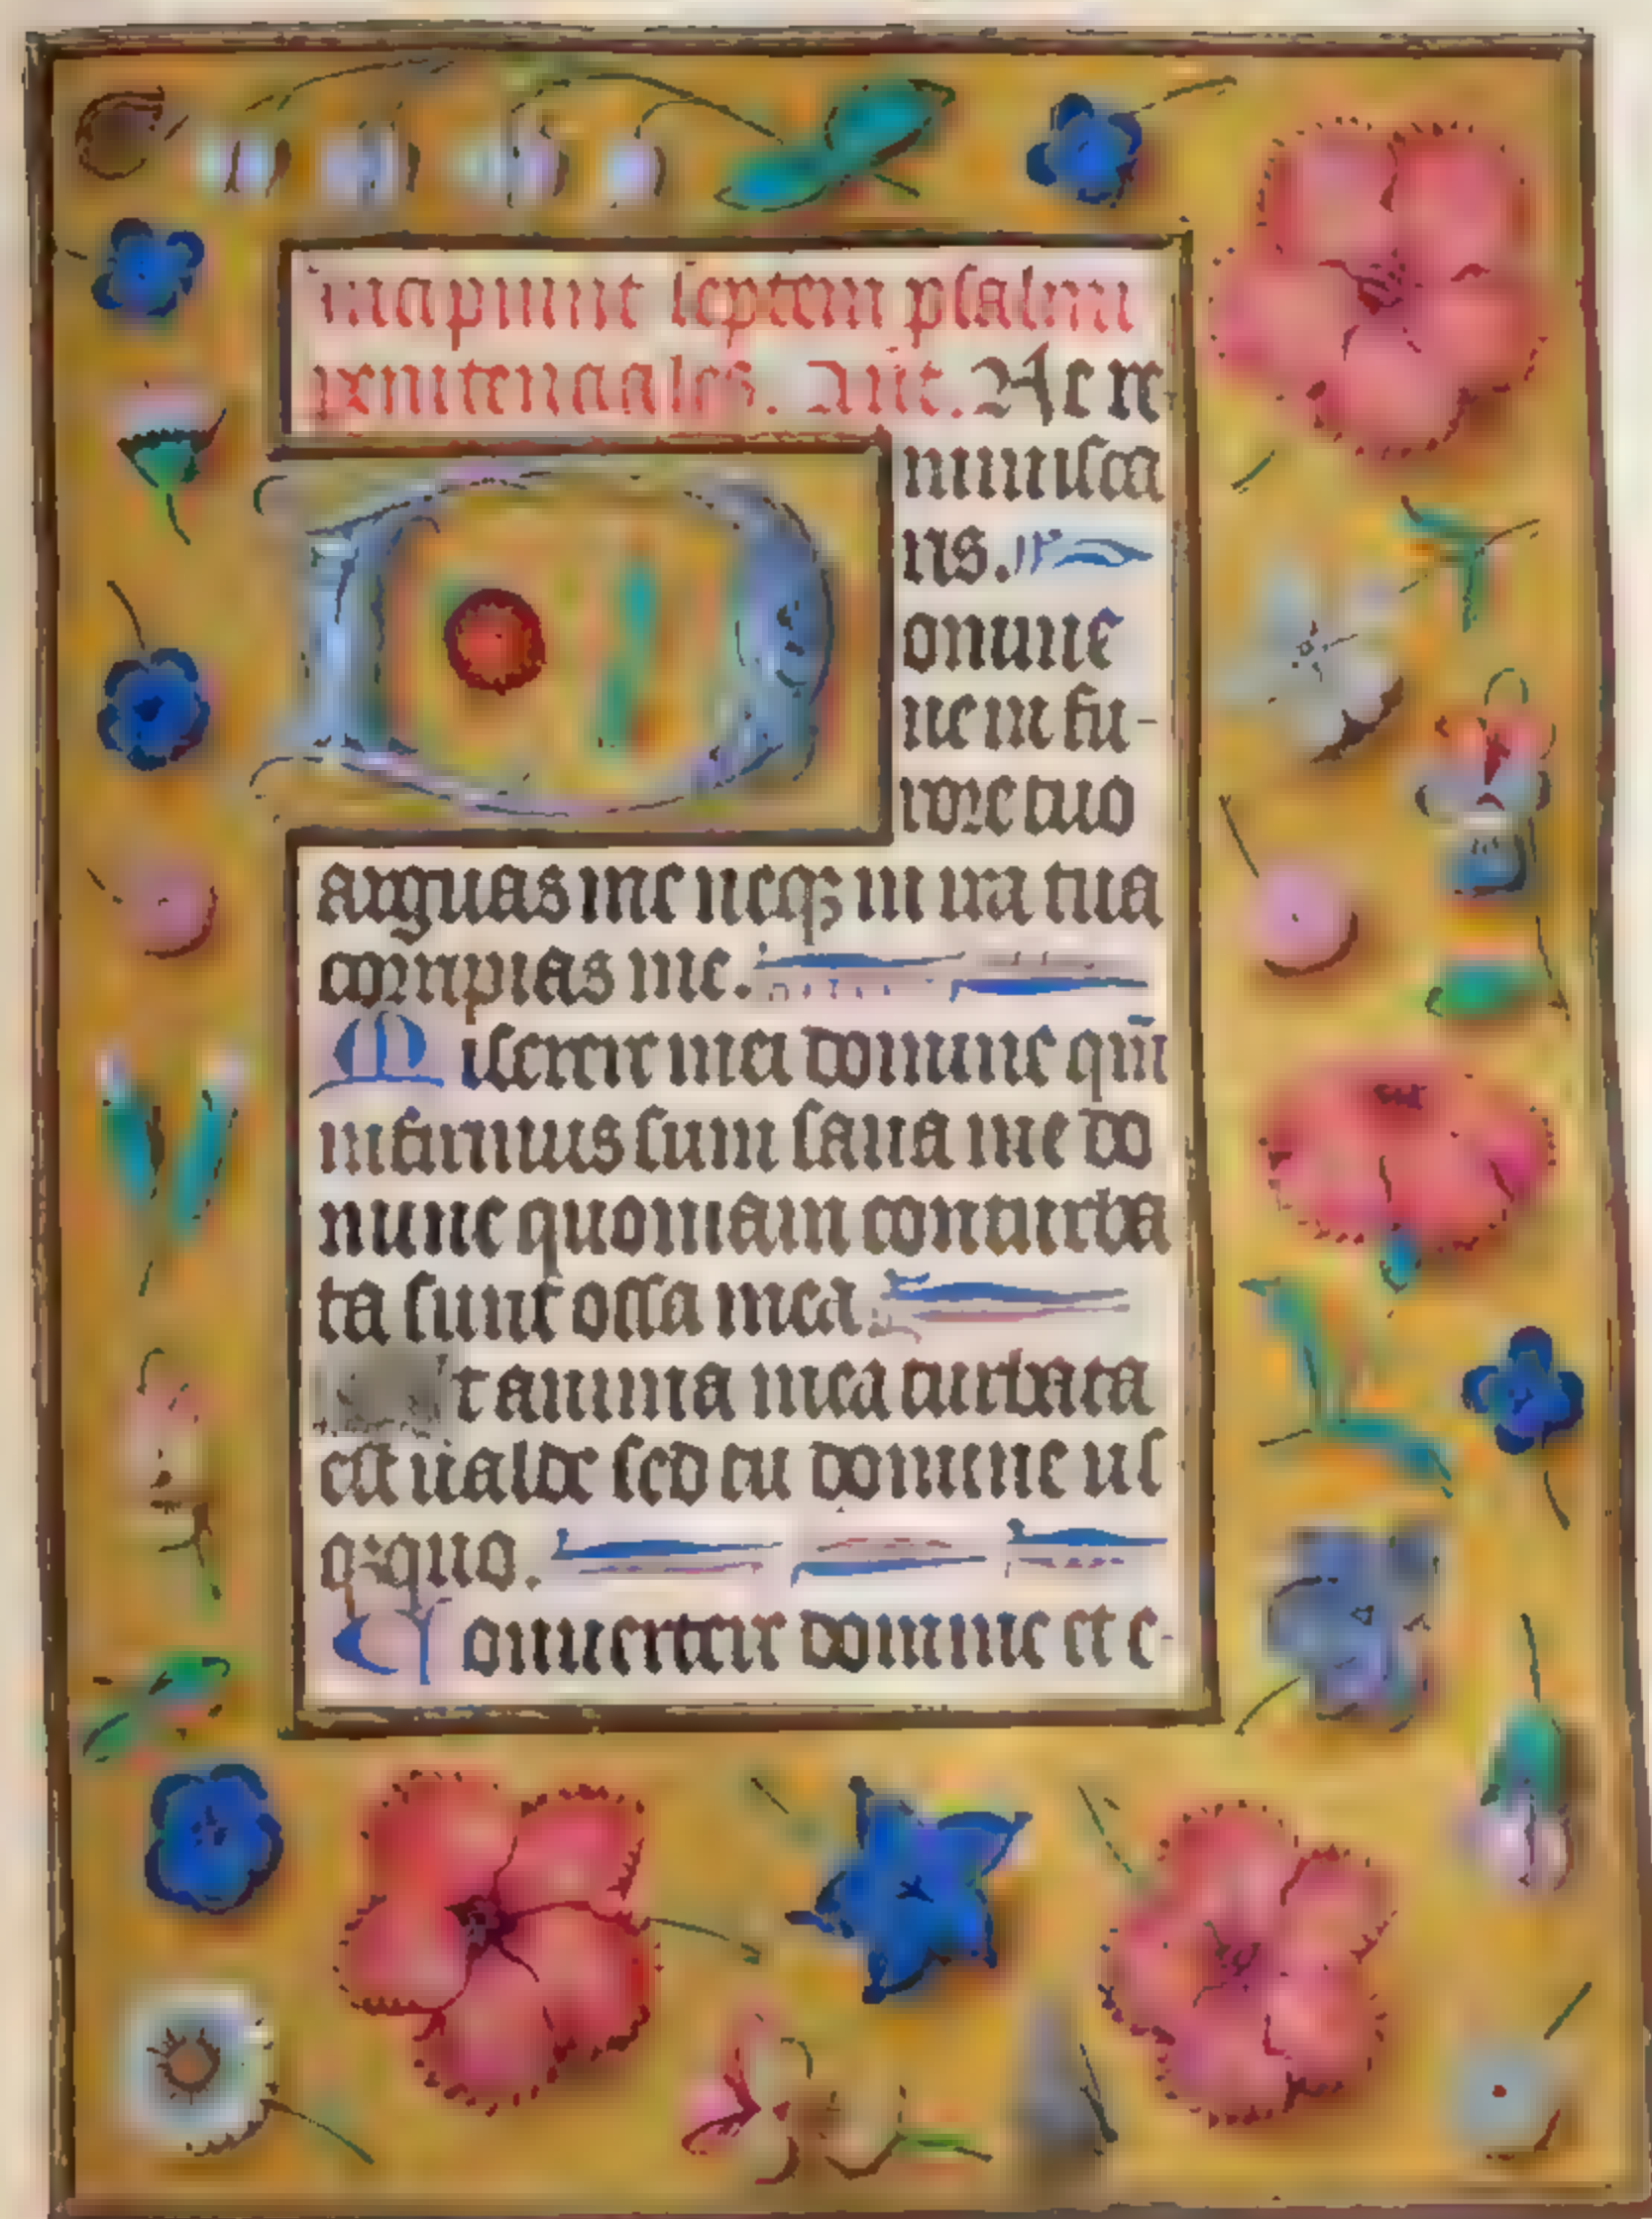 incipiunt septem psalmi
penitenciales. Ant. Ne re
minisca
ris. ps
Domine
ne in fu-
rore tuo
arguas me neqz in ira tua
corripias me.
Miserere mei domine qm̄
infirmus sum sana me do
mine quoniam conturba
ta sunt ossa mea.
Et anima mea turbata
est ualde sed tu domine us
qzquo.
Conuertere domine et e-